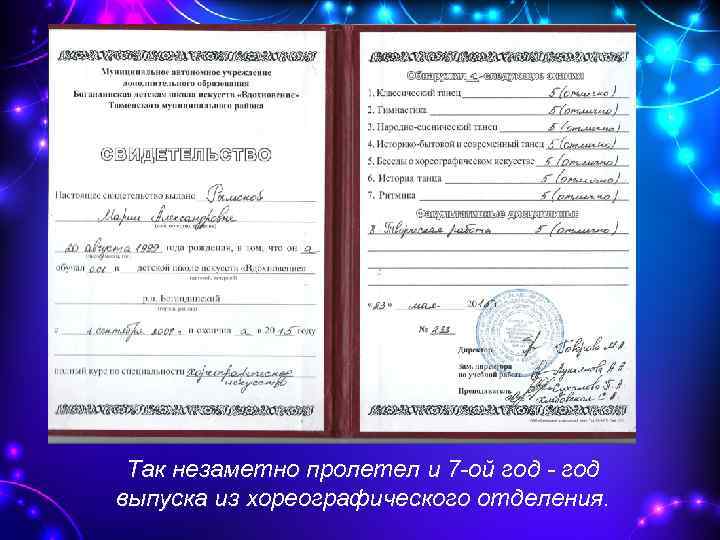 Муниципальное автономное учреждение
дополнительного образования
Боганлинская детская школа искусств «Вдохновение»
Тюменского муниципального района
СВИДЕТЕЛЬСТВО
Настоящее свидетельство выдано Рымской
Марии Александровне
20 августа 1999 года рождения, в том, что он а
обучал ась в детской школе искусств «Вдохновение»
р.п. Богандинский
с 1 сентября 2008 и окончил а в 2015 году
полный курс по специальности хореографическое
искусство
Обнаружил а следующие знания
1. Классический танец 5 (отлично)
2. Гимнастика 5 (отлично)
3. Народно-сценический танец 5 (отлично)
4. Историко-бытовой и современный танец 5 (отлично)
5. Беседы о хореографическом искусстве 5 (отлично)
6. История танца 5 (отлично)
7. Ритмика 5 (отлично)
Факультативные дисциплины
8 Творческая работа 5 (отлично)
«23» мая 2015 г.
№ 233
Директор Говорова М.А
Зам. директора
по учебной работе
Преподаватель
Так незаметно пролетел и 7-ой год - год
выпуска из хореографического отделения.